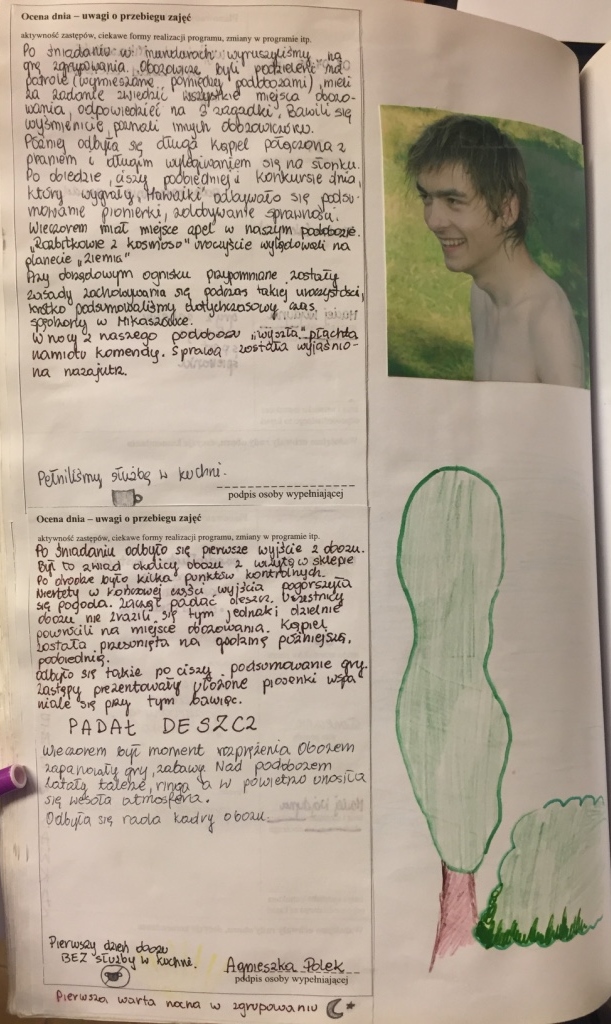 Ocena dnia – uwagi o przebiegu zajęć
aktywność zastępów, ciekawe formy realizacji programu, zmiany w programie itp.
Po śniadaniu w mundurach wyruszyliśmy na
grę zgrupowania. Obozowicze byli podzieleni na
patrole (wymieszane pomiędzy podobozami), mieli
za zadanie zwiedzić wszystkie miejsca obozo-
wania, odpowiedzieć na 3 zagadki. Bawili się
wyśmienicie, poznali innych obozowiczów.
Później odbyła się długa kąpiel połączona z
praniem i długim wylegiwaniem się na słonku.
Po obiedzie, ciszy poobiedniej i konkursie dnia,
który wygrały „Hawajki" odbywało się podsu-
mowanie pionierki, zdobywanie sprawności.
Wieczorem miał miejsce apel w naszym podobozie.
„Rozbitkowie z kosmosu" uroczyście wylądowali na
planecie „Ziemia"
Przy obrzędowym ognisku przypomniane zostały
zasady zachowywania się podczas takiej uroczystości,
krótko podsumowaliśmy dotychczasowy czas
spędzony w Mikaszówce.
W nocy z naszego podobozu „wyszła" płachta
namiotu komendy. Sprawa została wyjaśnio-
na nazajutrz.
Pełniliśmy służbę w kuchni.
podpis osoby wypełniającej
Ocena dnia – uwagi o przebiegu zajęć
aktywność zastępów, ciekawe formy realizacji programu, zmiany w programie itp.
Po śniadaniu odbyło się pierwsze wyjście z obozu.
Był to zwiad okolicy obozu z wizytą w sklepie
Po drodze było kilka punktów kontrolnych.
Niestety w końcowej części wyjścia pogorszyła
się pogoda. Zaczął padać deszcz. Uczestnicy
obozu nie zrazili się tym jednak i dzielnie
powrócili na miejsce obozowania. Kąpiel
została przesunięta na godzinę późniejszą,
poobiednią.
Odbyło się także po ciszy podsumowanie gry.
Zastępy prezentowały ułożone piosenki wspa
niale się przy tym bawiąc.
PADAŁ DESZCZ
Wieczorem był moment rozprężenia Obozem
zapanowały gry, zabawy. Nad podobozem
latały talerze, ringa a w powietrzu unosiła
się wesoła atmosfera.
Odbyła się rada kadry obozu.
Pierwszy dzień obozu
BEZ służby w kuchni.
Agnieszka Polek
podpis osoby wypełniającej
Pierwsza warta nocna w zgrupowaniu